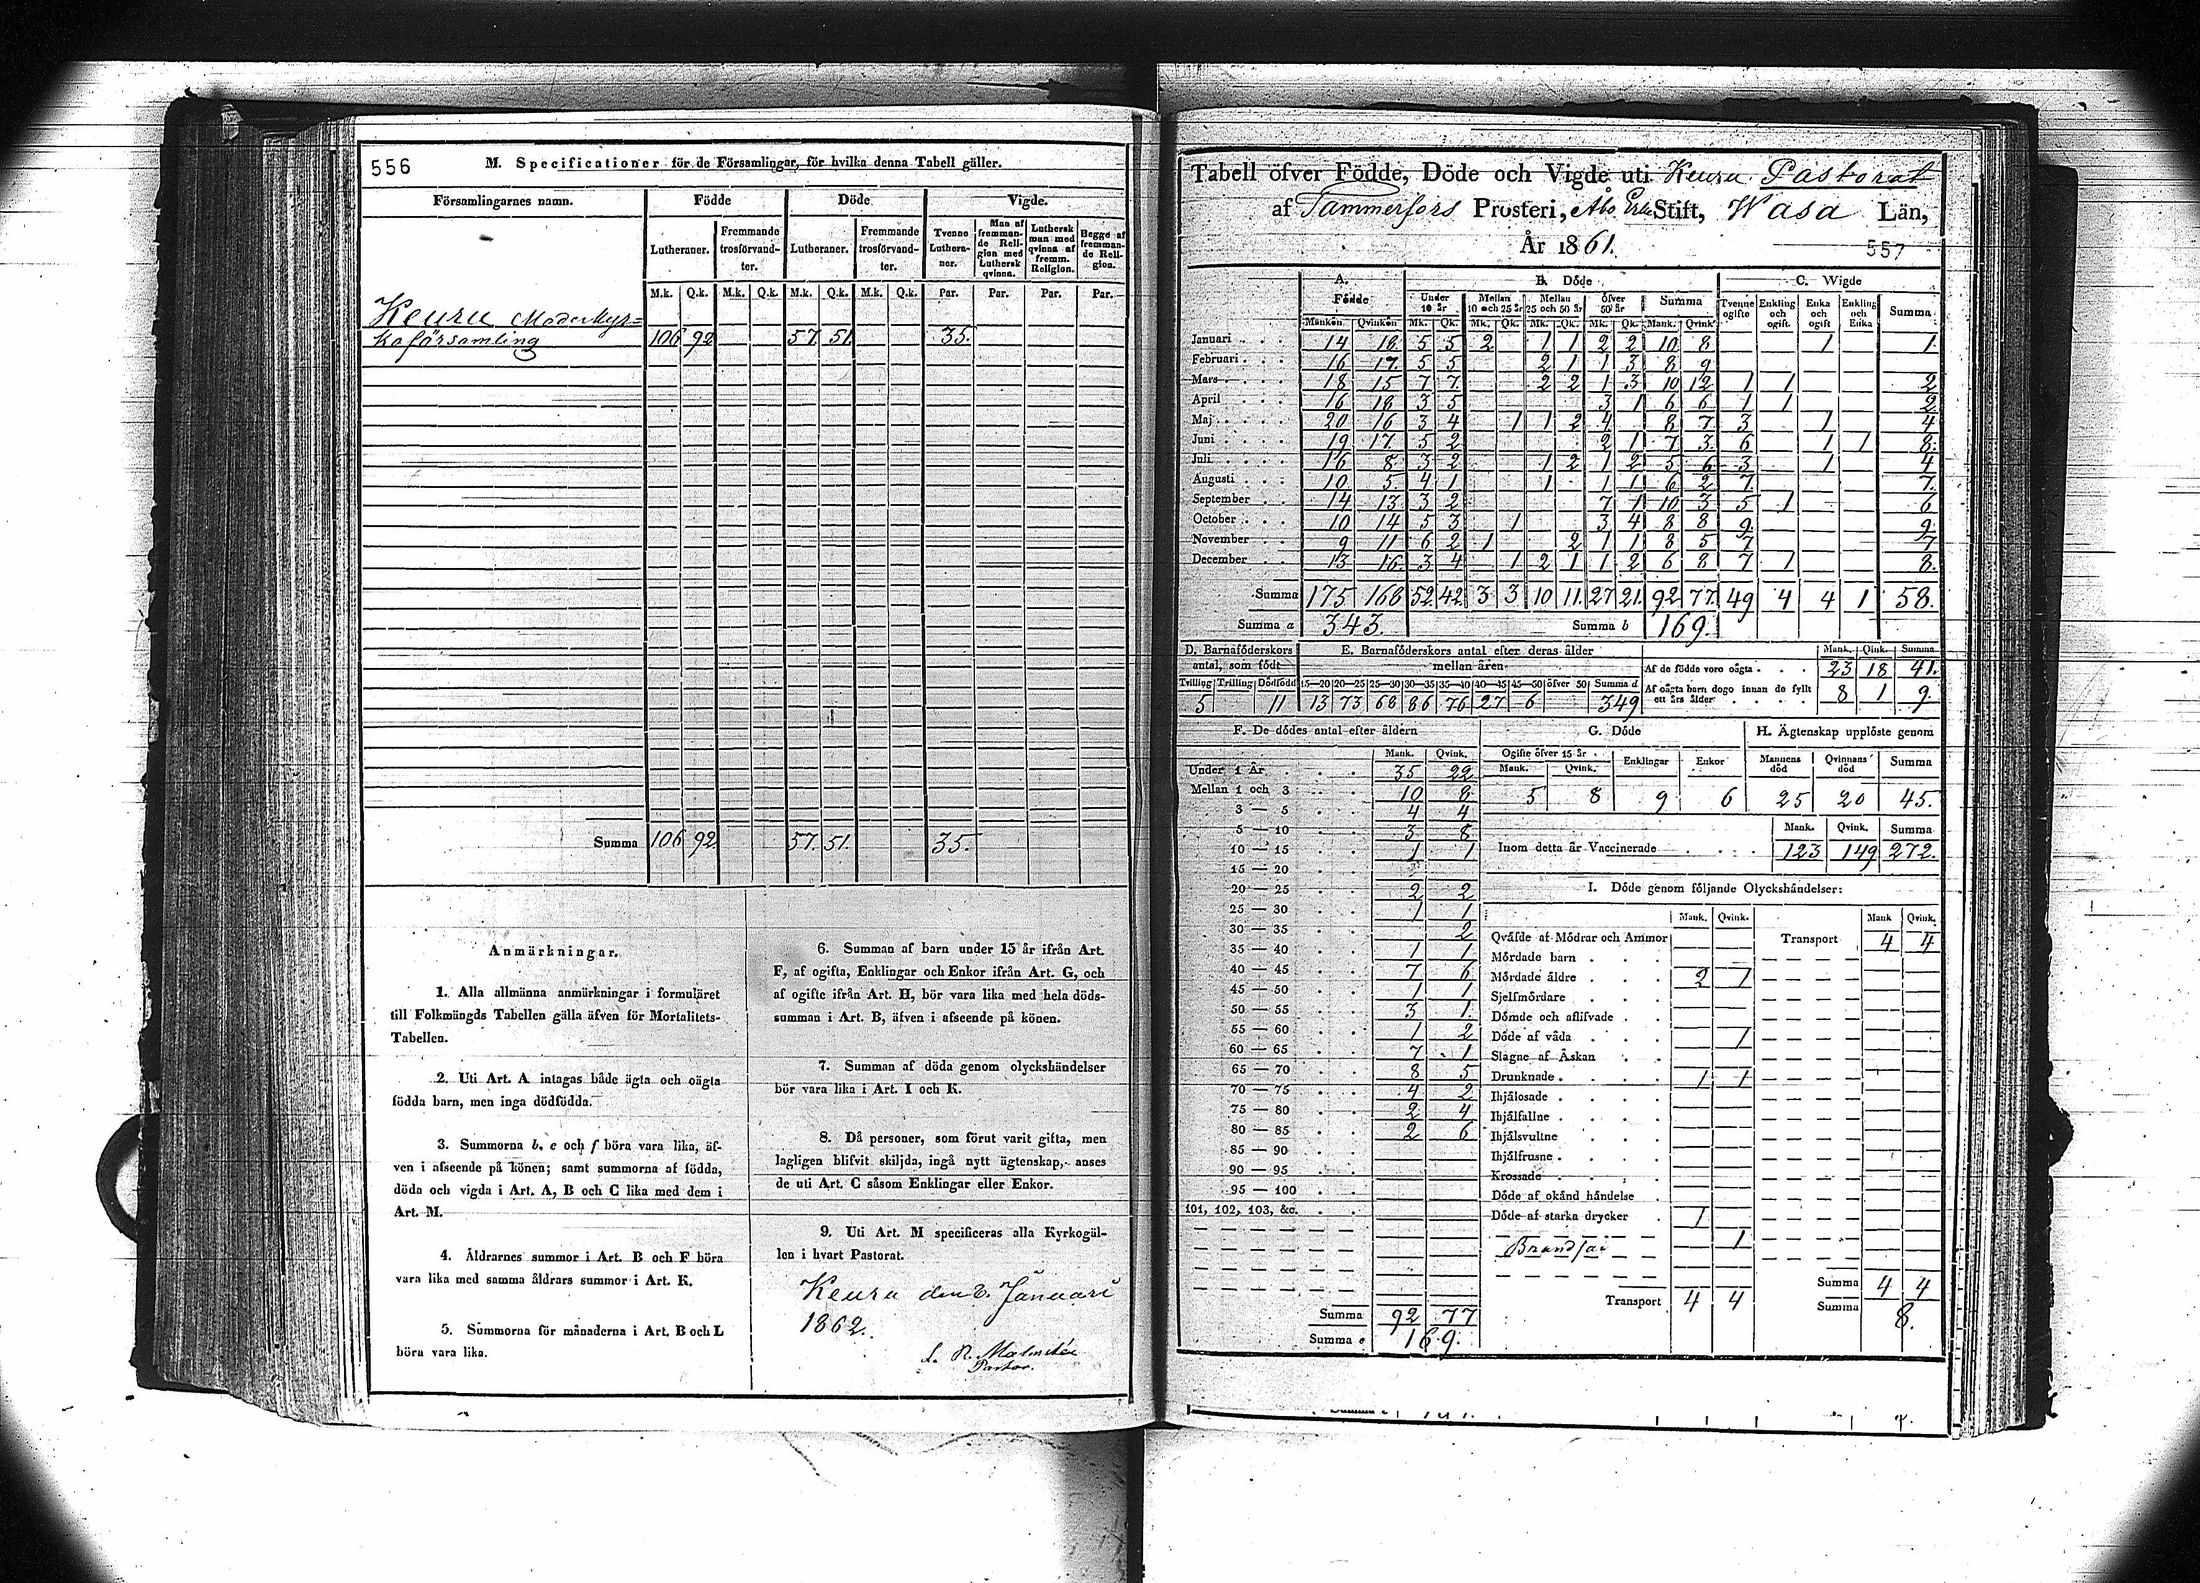 556
M. Specificationer för de Församlingar, för hvilka denna Tabell gäller.
Församlingarnes namn. Födde Döde Vigde.
Lutheraner. Fremmande trosförvandter. Lutheraner. Fremmande trosförvandter. Tvenne Lutheraner. Man af fremmande Religion med Luthersk qvinna. Luthersk man med qvinna af fremm. Religion. Begge af fremmande Religion.
M.k. Q.k. M.k. Q.k. M.k. Q.k. M.k. Q.k. Par. Par. Par. Par.
Keuru Moderkyr=
koförsamling 106 92 57. 51. 35.
Summa 106 92. 57. 51. 35.
Anmärkningar.
1. Alla allmänna anmärkningar i formuläret
till Folkmängds Tabellen gälla äfven för Mortalitets-
Tabellen.
2. Uti Art. A intagas både ägta och oägta
födda barn, men inga dödfödda.
3. Summorna b, e och f böra vara lika, äf-
ven i afseende på könen; samt summorna af födda,
döda och vigda i Art. A, B och C lika med dem i
Art. M.
4. Åldrarnes summor i Art. B och F böra
vara lika med samma åldrars summor i Art. K.
5. Summorna för månaderna i Art. B och L
böra vara lika.
6. Summan af barn under 15 år ifrån Art.
F, af ogifta, Enklingar och Enkor ifrån Art. G, och
af ogifte ifrån Art. H, bör vara lika med hela döds-
summan i Art. B, äfven i afseende på könen.
7. Summan af döda genom olyckshändelser
bör vara lika i Art. I och K.
8. Då personer, som förut varit gifta, men
lagligen blifvit skiljda, ingå nytt ägtenskap, anses
de uti Art. C såsom Enklingar eller Enkor.
9. Uti Art. M specificeras alla Kyrkogäl-
len i hvart Pastorat.
Keuru den 6. Januari
1862.
Pastor.
Tabell öfver Födde, Döde och Vigde uti Keuru Pastorat
af Tammerfors Prosteri, Åbo Erke Stift, Wasa Län,
År 1861.
557
A. Födde B. Döde C. Wigde
Under 10 år Mellan 10 och 25 år Mellan 25 och 50 år Öfver 50 år Summa Tvenne ogifte Enkling och ogift. Enka och ogift Enkling och Enka Summa
Mankön Qvinkön Mk. Qk. Mk. Qk. Mk. Qk. Mk. Qk. Mank. Qvink.
Januari 14 18 5 5 2 1 1 2 2 10 8 1 1.
Februari 16 17. 5 5 2 1 1 3 8 9
Mars 18 15 7 7. 2 2 1 3 10 12 1 1 2
April 16 18 3 5 3 1 6 6 1 1 2.
Maj 20 16 3 4 1 1 2 4 8 7 3 1 4
Juni 19 17. 5 2 2 1 7 3 6 1 1 8.
Juli 16 8 3 2 1 2 1 2 5 6 3 1 4
Augusti 10 5 4 1 1 1 1 6 2 7. 7.
September 14 13 3 2 7 1 10 3 5 1 6
October 10 14 5 3 1 3 4 8 8 9. 9.
November 9 11 6 2 1 2 1 1 8 5 7 7
December 13 16 3 4 1 2 1 1 2 6 8 7 1 8.
Summa 175 168 52. 42. 3 3 10 11. 27 21. 92 77. 49 4 4 1 58.
Summa a 343. Summa b 169.
D. Barnaföderskors antal, som födt E. Barnaföderskors antal efter deras ålder mellan åren
Tvilling Trilling Dödfödd 15—20 20—25 25—30 30—35 35—40 40—45 45—50 öfver 50 Summa d
5 11 13 73 68 86 76 27 6 349
Mank. Qink. Summa
Af de födde voro oägta 23 18 41.
Af oägta barn dogo innan de fyllt ett års ålder 8 1 9.
F. De dödes antal efter åldern
Mank. Qvink.
Under 1 År 35 22
Mellan 1 och 3 10 8
3 — 5 4 4
5 — 10 3 8.
10 — 15 1 1
15 — 20
20 — 25 2 2
25 — 30 1 1
30 — 35 2
35 — 40 1 1
40 — 45 7 6
45 — 50 1 1
50 — 55 3 1.
55 — 60 1 2
60 — 65 7 1
65 — 70 8 5
70 — 75 4 2
75 — 80 2 4
80 — 85 2 6
85 — 90
90 — 95
95 — 100
101, 102, 103, &c.
Summa 92 77
Summa e 169.
G. Döde
Ogifte öfver 15 år Enklingar Enkor
Mank. Qvink.
5 8 9 6
H. Ägtenskap upplöste genom
Mannens död Qvinnans död Summa
25 20 45.
Mank. Qvink. Summa
Inom detta år Vaccinerade 123 149 272.
I. Döde genom följande Olyckshändelser:
Mank. Qvink. Mank Qvink.
Qväfde af Mödrar och Ammor Transport 4 4
Mördade barn
Mördade äldre 2 1
Sjelfmördare
Dömde och aflifvade
Döde af våda 1
Slagne af Åskan
Drunknade 1 1
Ihjälosade
Ihjälfallne
Ihjälsvultne
Ihjälfrusne
Krossade
Döde af okänd händelse
Döde af starka drycker 1
1
Summa 4 4
Transport 4 4 Summa 8.